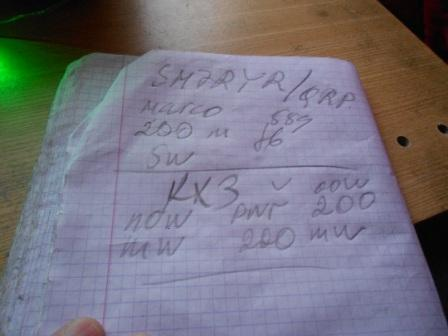 SM7RYR/QRP
MARCO 589
200 m 56
5W
KX3 now
now PWR 200
mW 220 mW